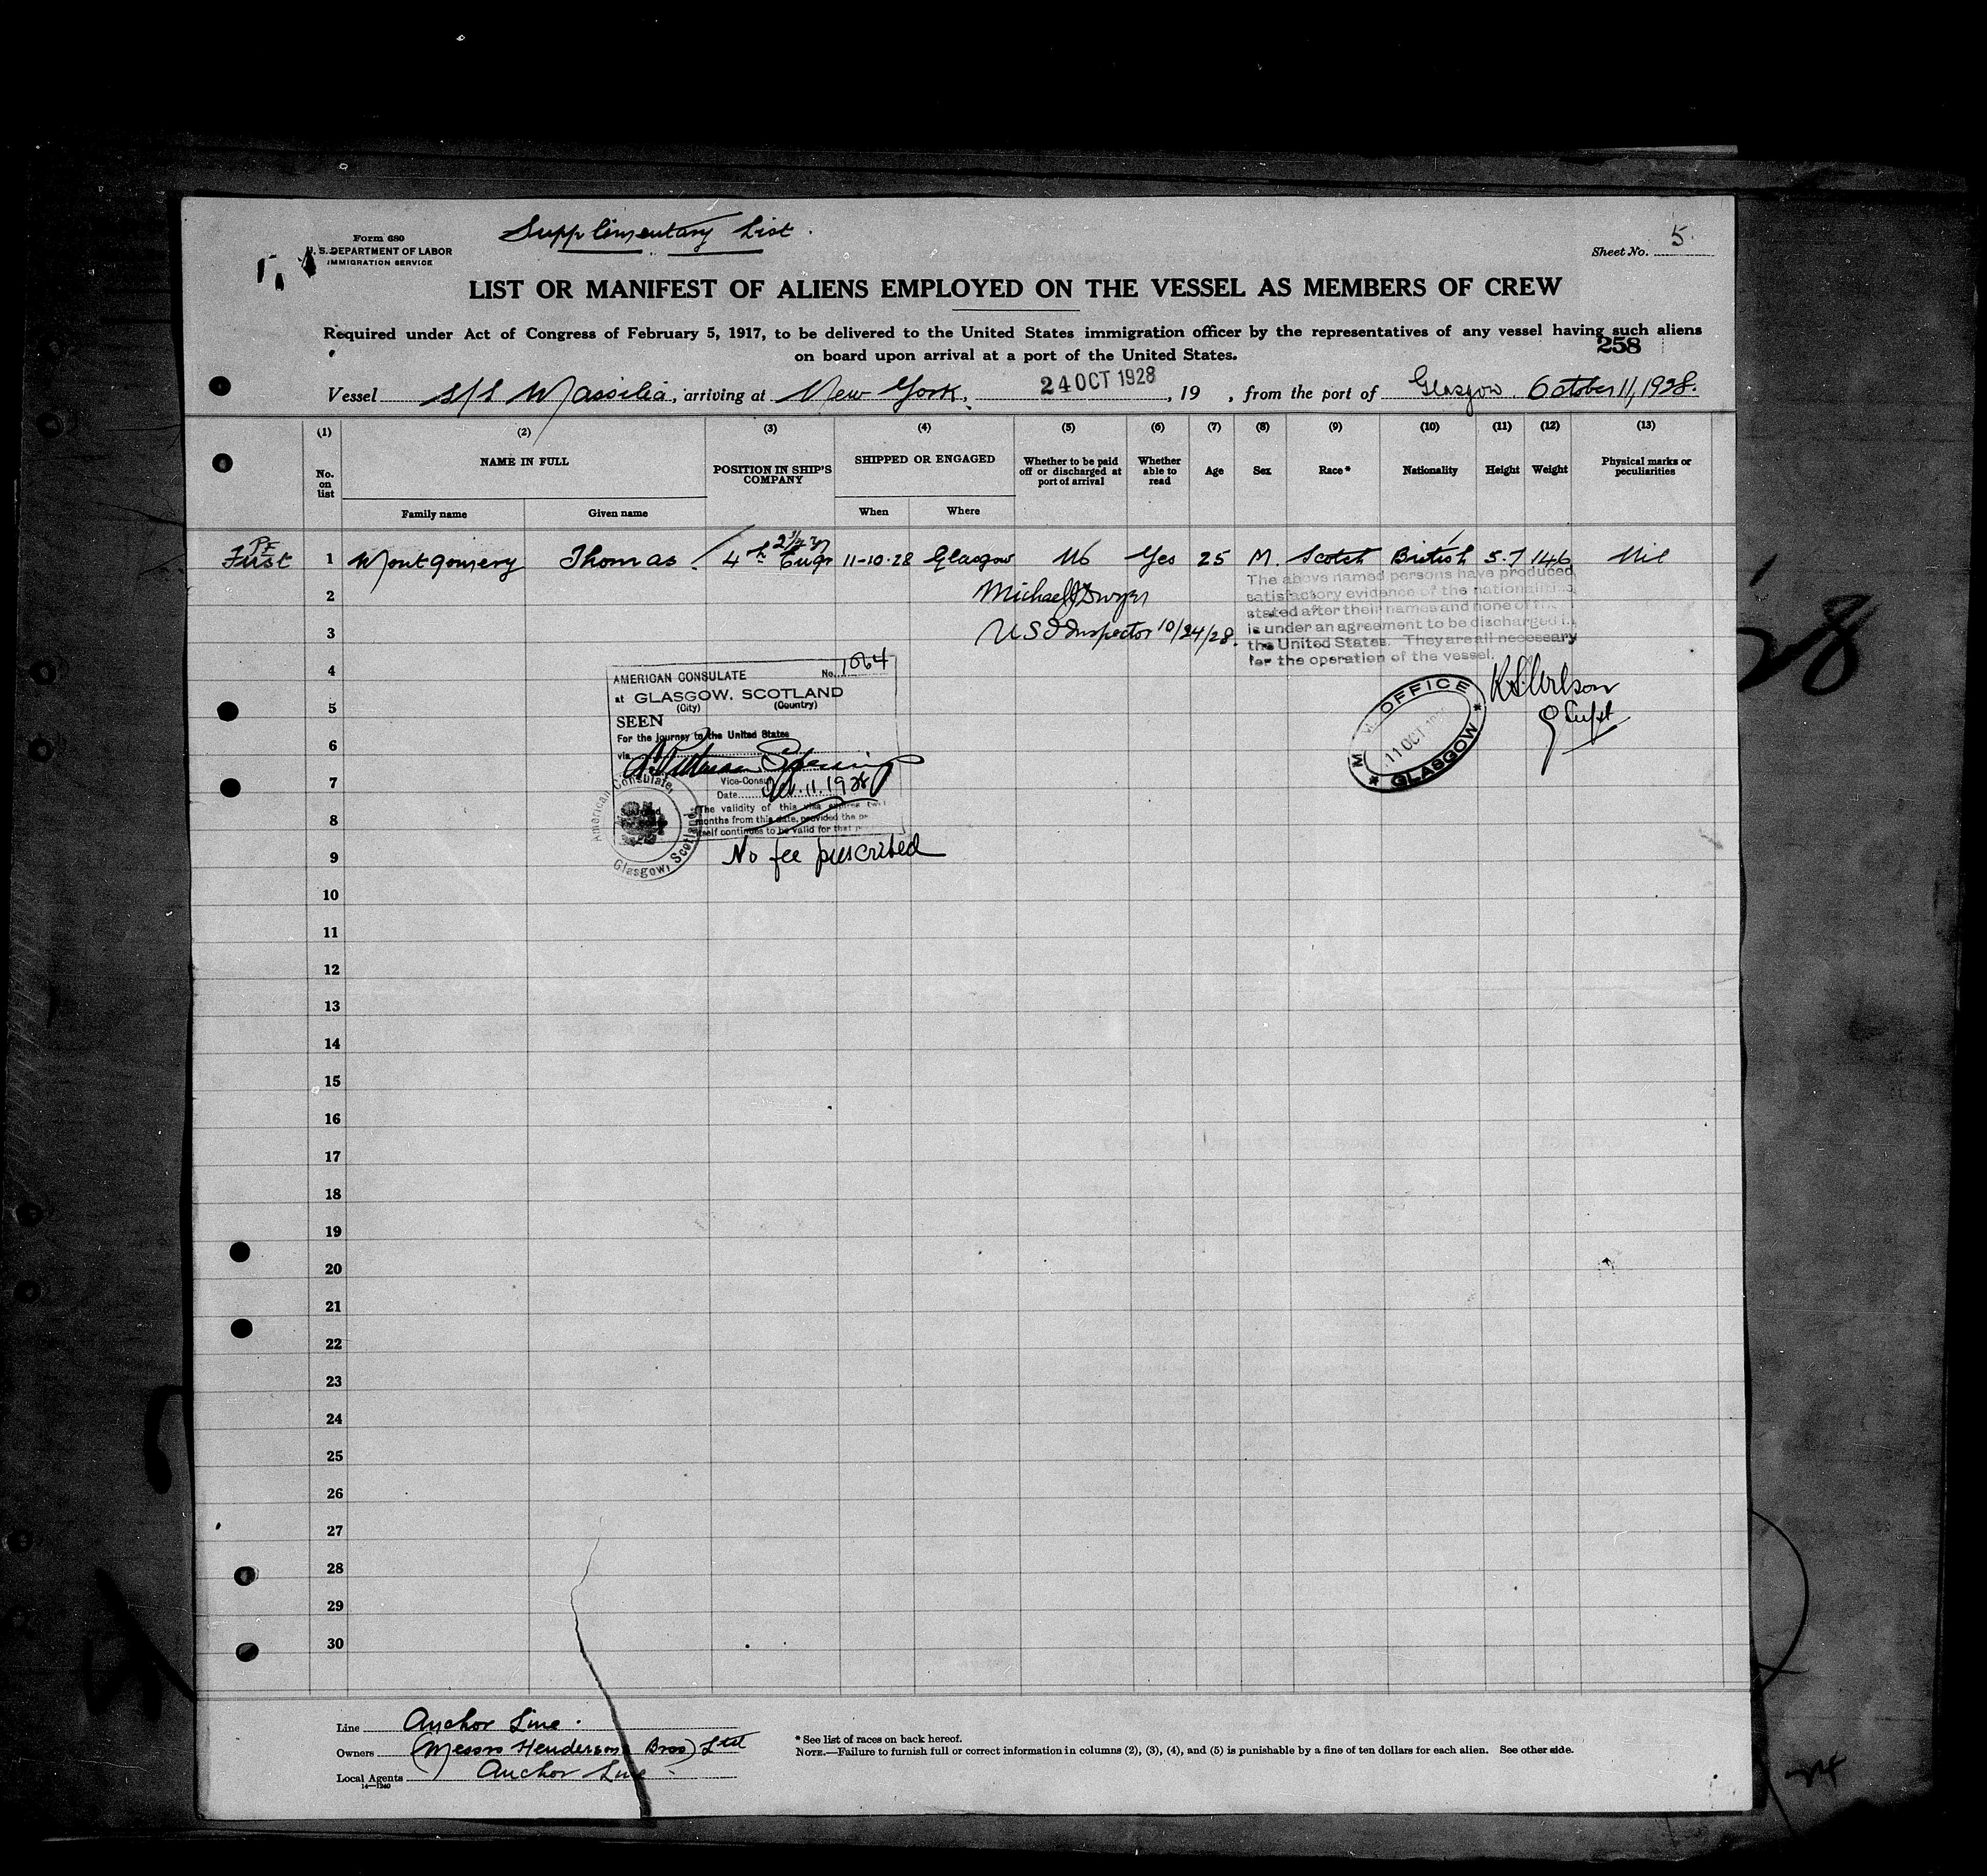 Supplimentary List.
Form 680
U. S. DEPARTMENT OF LABOR
IMMIGRATION SERVICE
Sheet No. 5.
LIST OR MANIFEST OF ALIENS EMPLOYED ON THE VESSEL AS MEMBERS OF CREW
Required under Act of Congress of February 5, 1917, to be delivered to the United States immigration officer by the representatives of any vessel having such aliens
on board upon arrival at a port of the United States.
258
Vessel S/S Massilia, arriving at New York, 24 OCT 1928, 19 , from the port of Glasgow. October 11, 1928.
(1) (2) (3) (4) (5) (6) (7) (8) (9) (10) (11) (12) (13)
No. on list NAME IN FULL POSITION IN SHIP'S COMPANY SHIPPED OR ENGAGED Whether to be paid off or discharged at port of arrival Whether able to read Age Sex Race* Nationality Height Weight Physical marks or peculiarities
Family name Given name When Where
First 1 Montgomery Thomas. 4th Engr 11-10-28 Glasgow No Yes 25 M. Scotch British 5.7 146 Nil
2 Michael J Dwyer
3 U S I Inspector 10/24/28.
The above named persons have produced
satisfactory evidence of the nationalities
stated after their names and none of
is under an agreement to be discharged in
the United States. They are all necessary
for the operation of the vessel.
4
5
6
7
8
9
AMERICAN CONSULATE No. 1064
at GLASGOW, SCOTLAND
(City) (Country)
SEEN
For the journey to the United States
via
Vice-Consul
Date Oct. 11. 1928
The validity of this visa expires
months from this date, provided the
itself continues to be valid for that
American Consulate,
Glasgow, Scotland
No fee prescribed
OFFICE
11 OCT
GLASGOW
Wilson
10
11
12
13
14
15
16
17
18
19
20
21
22
23
24
25
26
27
28
29
30
Line Anchor Line.
Owners (Messrs Henderson Bros) Ltd
Local Agents Anchor Line
14—1240
* See list of races on back hereof.
NOTE.—Failure to furnish full or correct information in columns (2), (3), (4), and (5) is punishable by a fine of ten dollars for each alien. See other side.
28
24